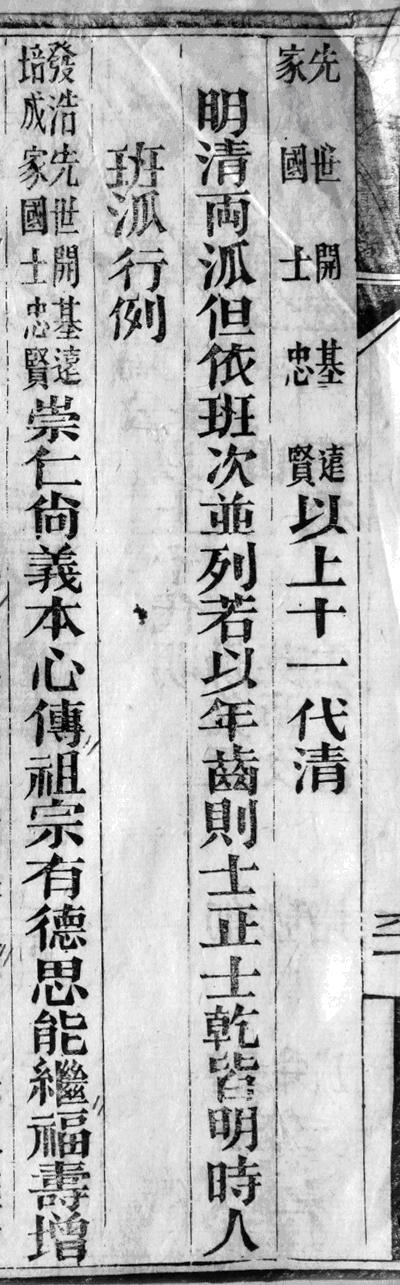 先世開基遠
家國士忠賢
以上十一代清
明清両派但依班次並列若以年齒則士正士乾皆明時人
班派行例
發浩先世開基遠
培成家國士忠賢
崇仁尙義本心傳祖宗有德思能繼福壽增